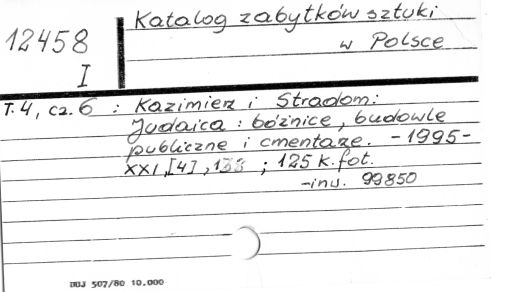 12458
I
Katalog zabytków sztuki
w Polsce
T.4, cz.6 : Kazimierz i Stradom:
Judaica : bóżnice, budowle
publiczne i cmentarze. -1995-
XXI,[4], ; 125 k.fot.
-inw. 99850
DUJ 507/80 10.000